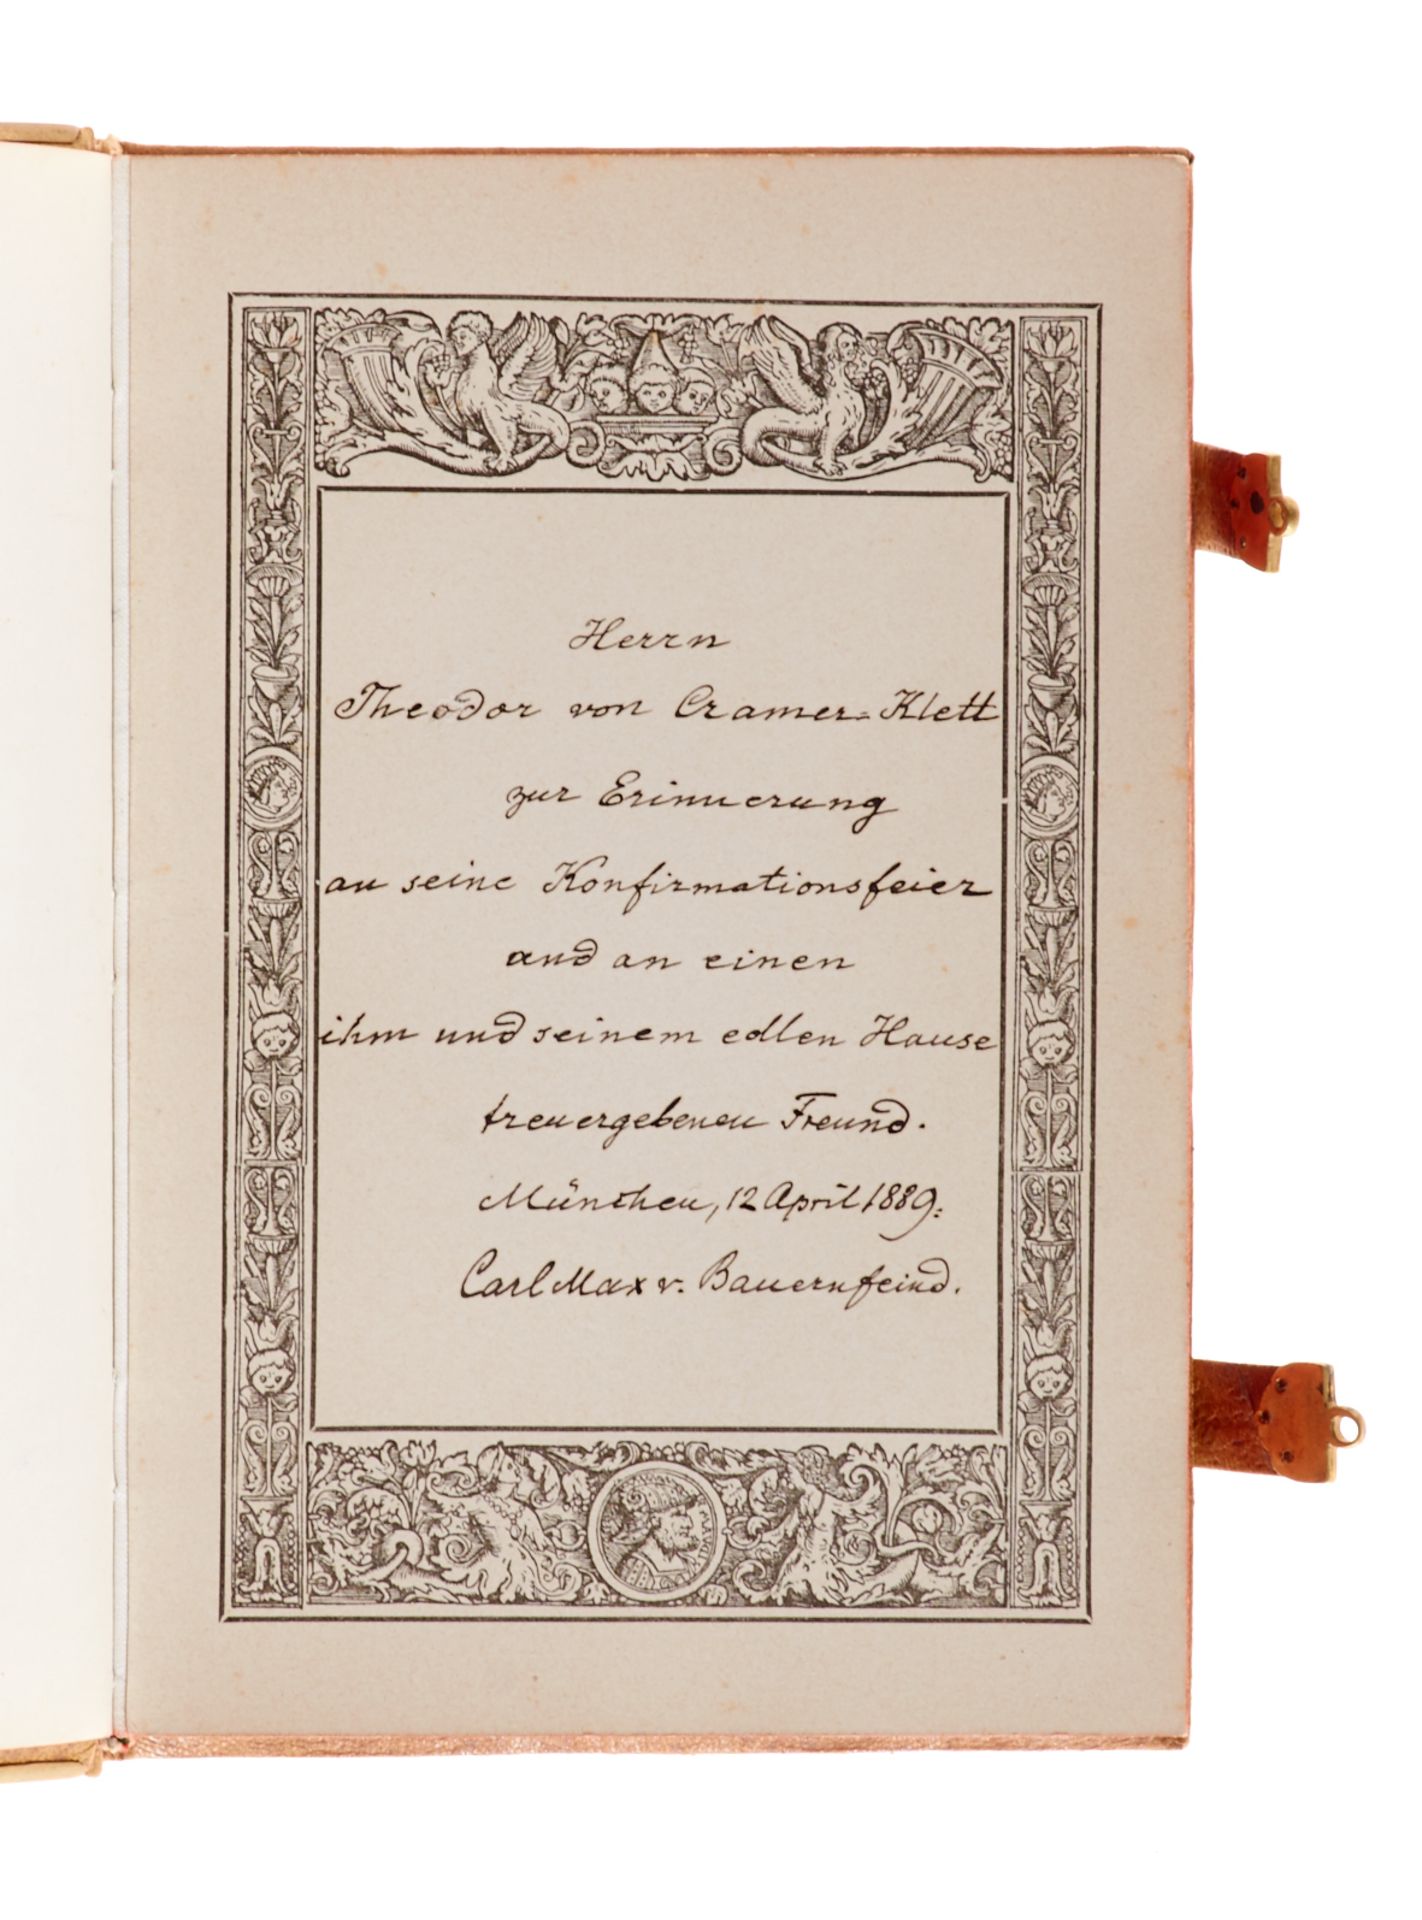 Herrn
Theodor von Cramer=Klett
zur Erinnerung
an seine Konfirmationsfeier
und an einen
ihm und seinem edlen Hause
treuergebenen Freund.
München, 12 April 1889.
Carl Max v. Bauernfeind.